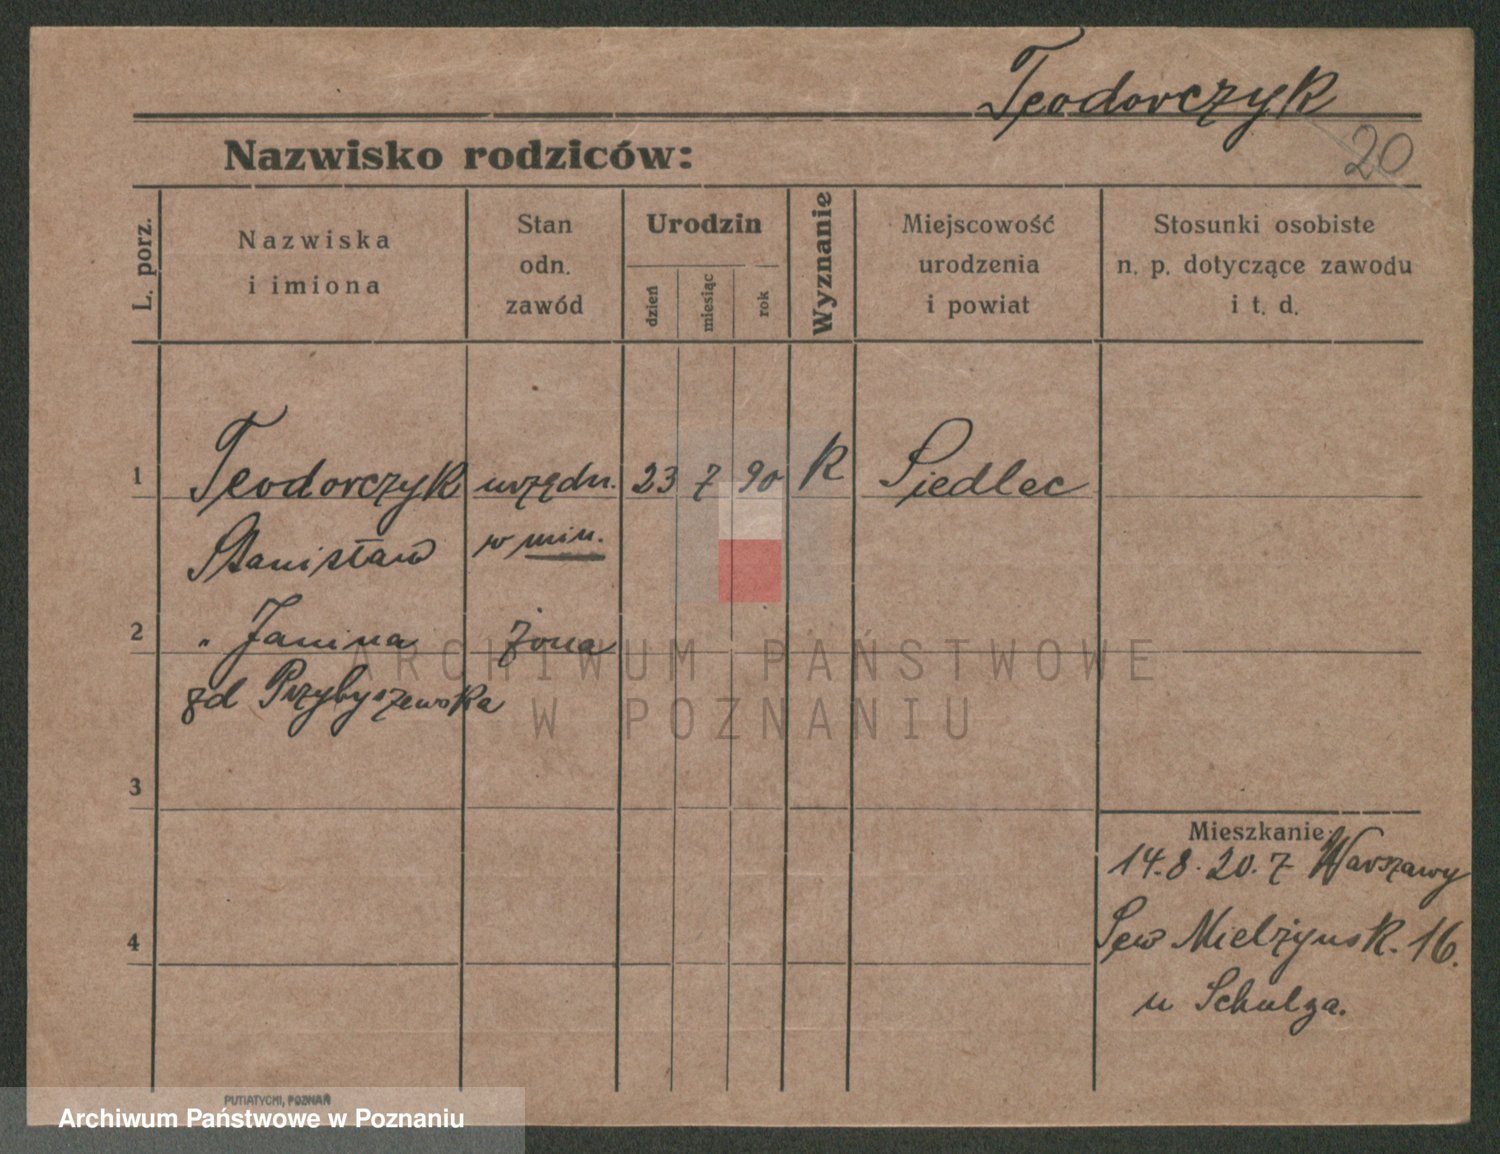 Teodorczyk
20
Nazwisko rodziców:
L. porz.
Nazwiska
i imiona
Stan
odn.
zawód
Urodzin
dzień
miesiąc
rok
Wyznanie
Miejscowość
urodzenia
i powiat
Stosunki osobiste
n. p. dotyczące zawodu
i t. d.
1 Teodorczyk urzędn. 23 7 90 k Siedlec
Stanisław w min.
2 " Janina żona
zd Przybyszewska
3
4
Mieszkanie:
14.8.20. z Warszawy
Sew Mielżynsk. 16.
u Schulza.
ARCHIWUM PAŃSTWOWE
W POZNANIU
PUTIATYCKI, POZNAŃ
Archiwum Państwowe w Poznaniu